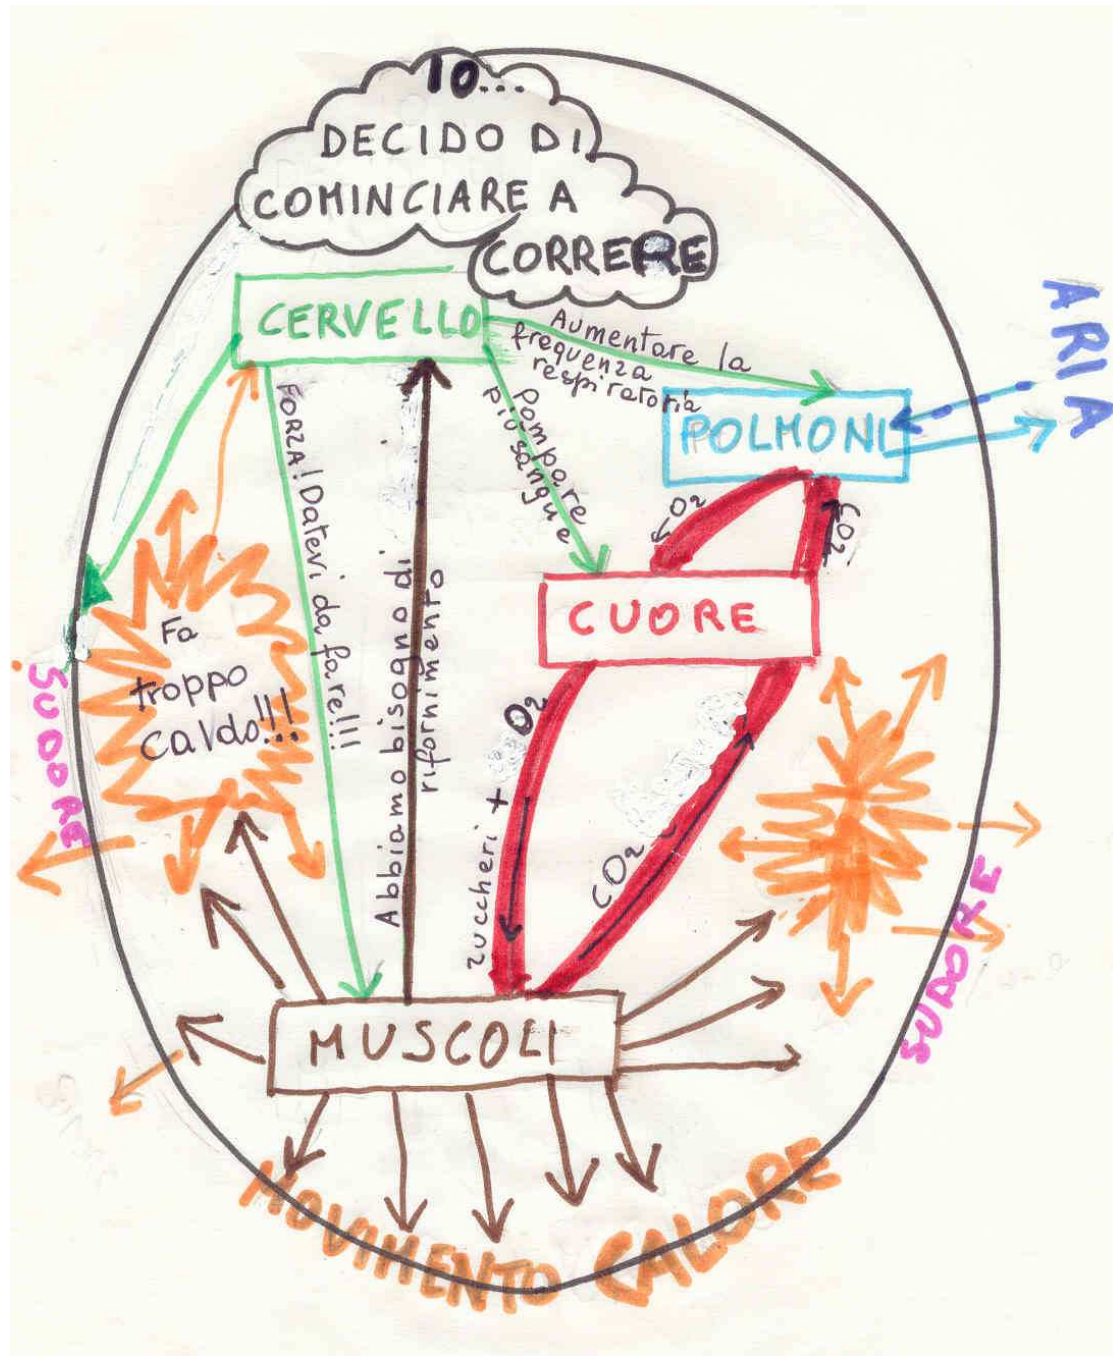 IO...
DECIDO DI
COMINCIARE A
CORRERE
CERVELLO
Aumentare la
frequenza
respiratoria
ARIA
POLMONI
Pompare
più sangue
O2
CO2
CUORE
FORZA! Datevi da fare!!!
Abbiamo bisogno di
rifornimento
Fa
troppo
caldo!!!
SUDORE
zuccheri + O2
CO2
SUDORE
MUSCOLI
MOVIMENTO CALORE